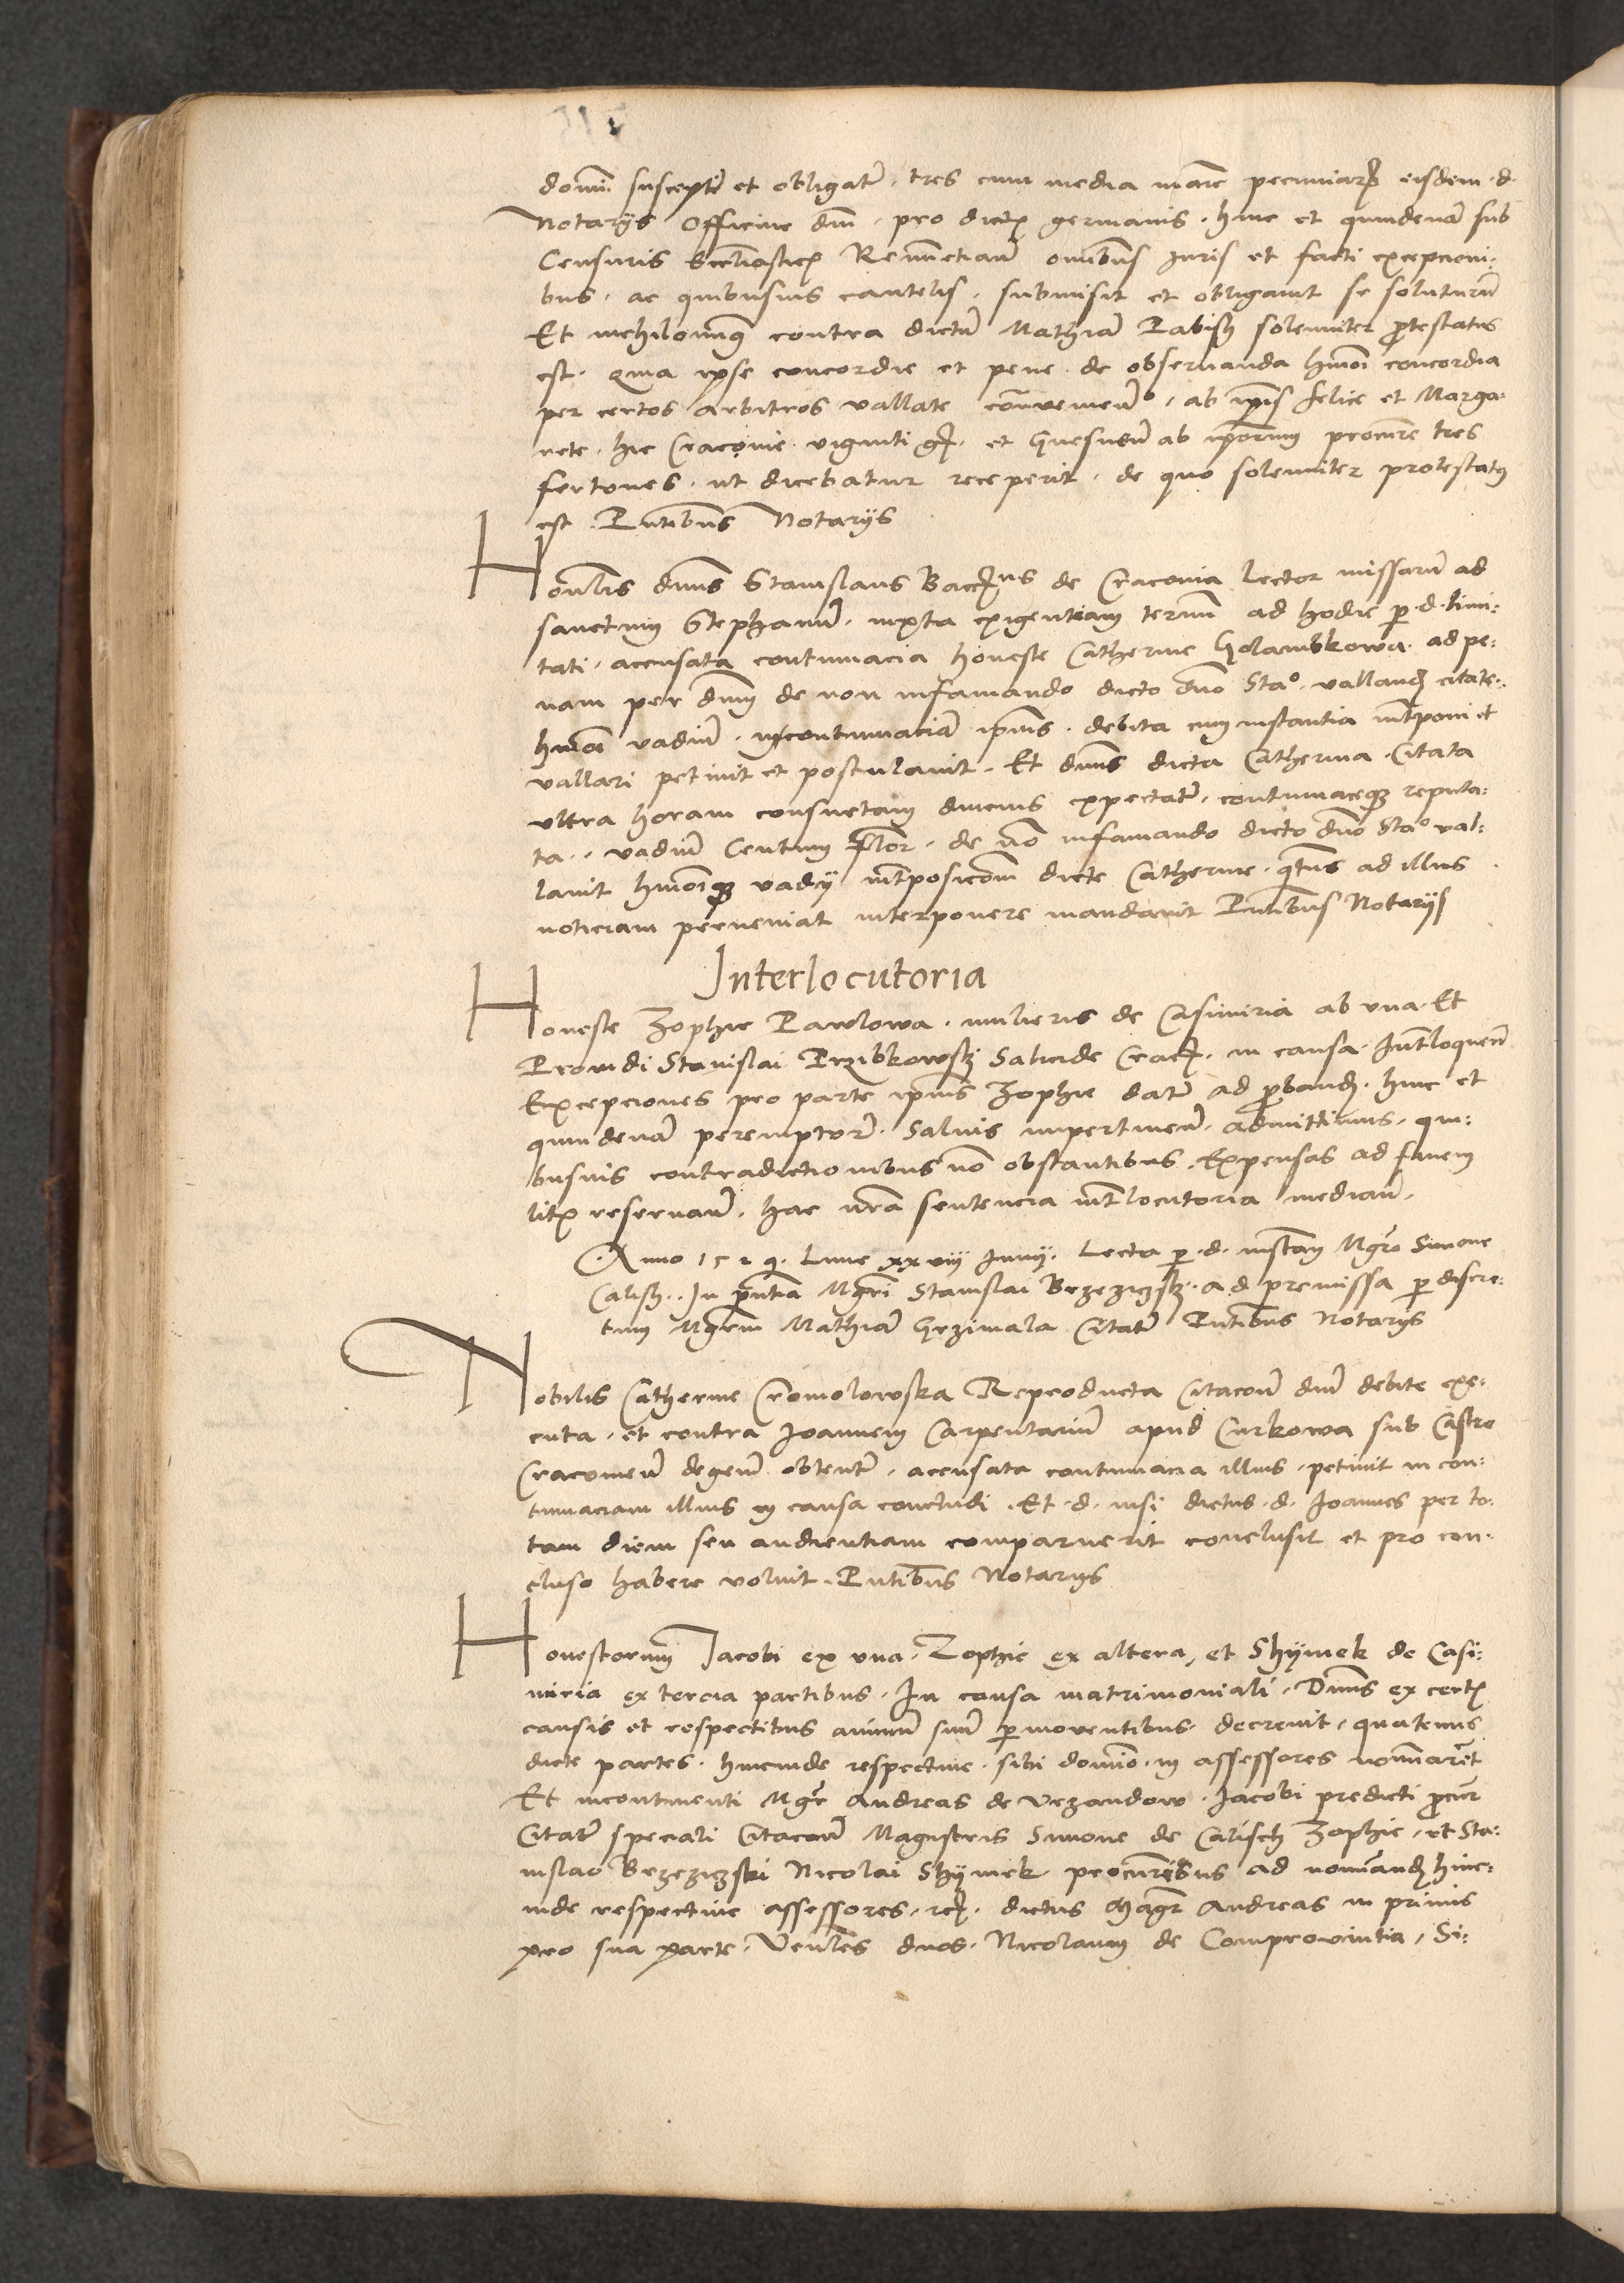 domini suscepti et obligati, tres cum media marc pecuniar eisdem d
Notarys Officine dni pro dictis germanis hinc et quindenam sub
Censuris Ecclesiasticis Renuncciand omnibus iuris et facti excepcioni:
bus ac quibusuis cautelis, submisit et obligauit se soluturum
Et nichilominus contra dictum Mathiam Rabisch solenniter protestatus
est. quia ipse concordie et pene de obseruanda hmoi concordia
per certos arbitros vallate, ab ipsis felice et Marga:
rete hic Cracouie viginti gr. et Gnesnen ab ipsorum procure tres
fertones, ut dicebatur receperit, de quo solenniter protestatus
est. Pntibus Notarys
Honlis dnus Stanislaus de Cracouia Lector missarum ad
sanctum Stephanum, iuxta exigentiam termini ad hodie p d limi:
tati, accusata contumacia honeste Catherine Golambkowa ad pe:
nam per dnum de non infamando dicto dno Stao. valland citate.
hmoi vadium in contumaciam ipsius debita cum instantia interponi et
vallari petiuit et postulauit. Et dnus dicta Catherina Citata
vltra horam consuetam diucius expectata, contumaceque reputa:
ta, vadium Centum flor. de no infamando dicto dno Stao val:
lauit hmoique vadij interposicom dicte Catherine qtenus ad illius
noticiam perueniat interponere mandauit Pntibus Notarijs
Interlocutoria
Honeste Zophie Pawlowa mulieris de Casimiria ab vna Et
Prouidi Stanislai Przibkowsky Salicide Crac. in causa Interloquendo
Excepciones pro parte ipsius Zophie datas ad proband hinc et
quindenam peremptorie Saluis impertinen. admittimus, qui:
busuis contradictionibus no obstantibus. Expensas ad finem
litis reseruand. hac nra sentencia interlocutoria median.
Anno 1529. Lune xxviij Junij. Lecta p d instan Mgro Simone
Calish. In pntia Mgri Stanislai Brzeziczsky ad premissa p discre:
tum Mgrum Mathiam Grzimala Citati Pntibus Notarys
Nobilis Catherine Cromolowska Reproducta Citacone dni debite exe:
cuta, et contra Joannem Carpentarium apud Curkowa sub Castro
Cracouien degen obtenta, accusata contumacia illius, petiuit in con:
tumaciam illius in causa concludi. Et d. nisi dictus d. Joannes per to:
tam diem seu audientiam comparuerit conclusit et pro con:
cluso habere voluit. Pntibus Notarys
Honestorum Jacobi ex vna, Zophie ex altera, et Shymek de Casi:
miria ex tercia partibus. In causa matrimoniali. Dnus ex certis
causis et respectibus animum suum p mouentibus decreuit, quatenus
dicte partes hincinde respectiue sibi domino in assessores nominarent
Et incontinenti Mgr Andreas de Vrzandow Jacobi predicti procur
Citatis speciali Citacone Magistris Simone de Calisch Zophie, et Sta:
nislao Brzeziczski Nicolai Shymek procuribus ad nominand hinc:
inde respectiue assessores, rc. dictus Magr Andreas in primis
pro sua parte Venles dnos Nicolaum de Comprovintia, Si: